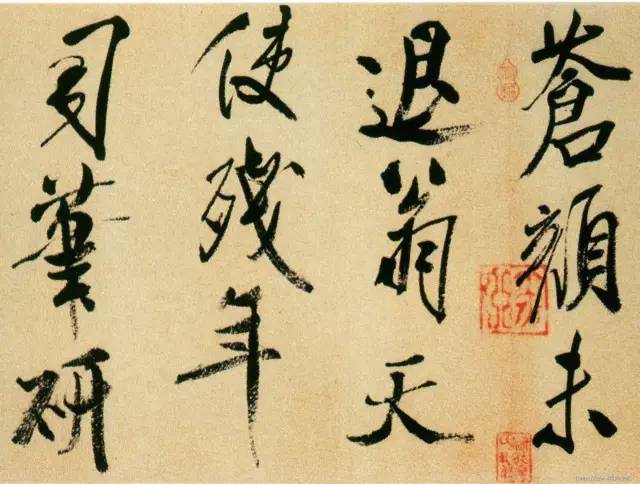 蒼顔未
退翁天
使殘年
司筆研